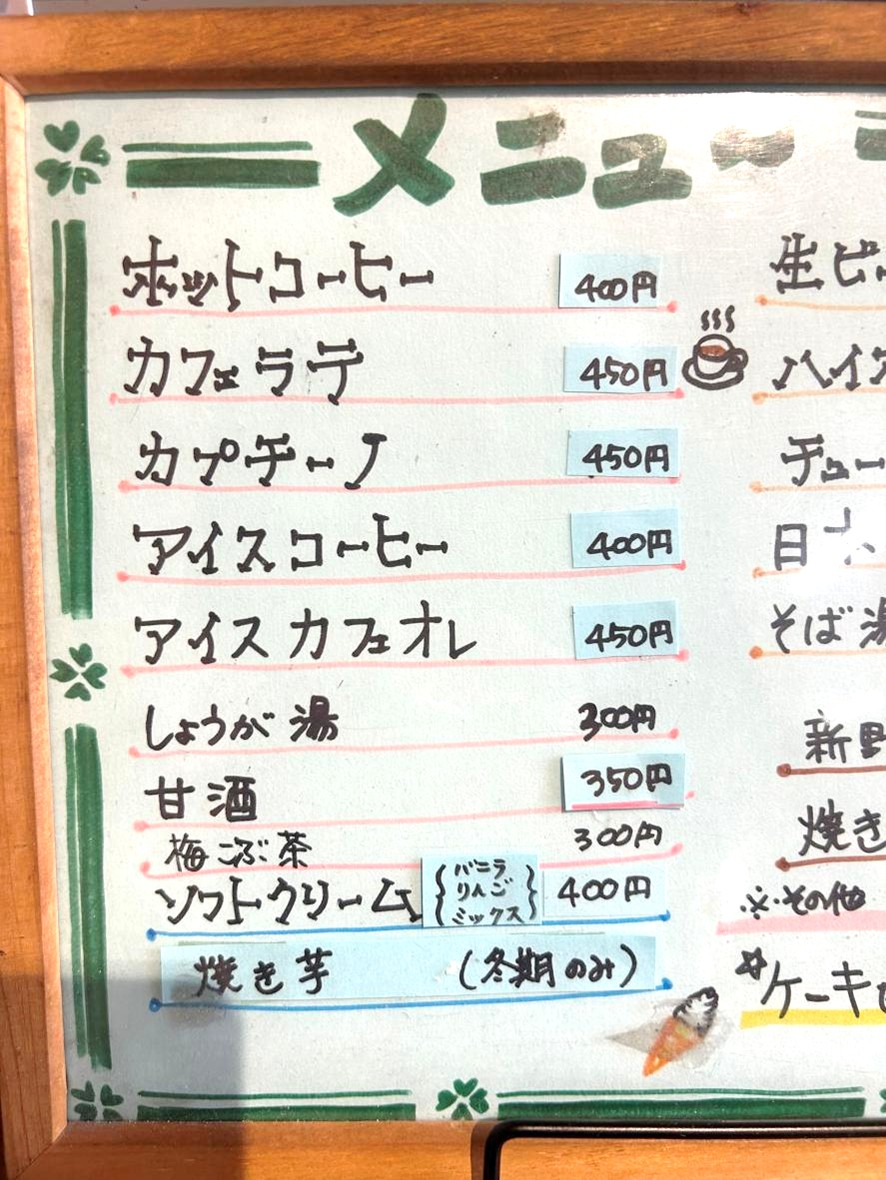 メニュー
ホットコーヒー 400円
カフェラテ 450円
カプチーノ 450円
アイスコーヒー 400円
アイスカフェオレ 450円
しょうが湯 300円
甘酒 350円
梅こぶ茶 300円
ソフトクリーム { バニラ りんご ミックス } 400円
焼き芋 (冬期のみ)
生ビ
ハイ
チュー
日本
そば湯
新野
焼き
※その他
☆ケーキ